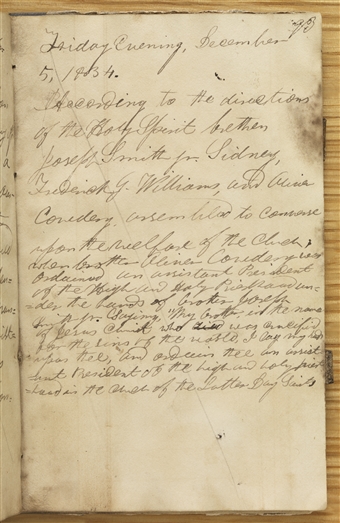 93
Friday Evening, December
5, 1834.
According to the directions
of the Holy Spirit brethen
Joseph Smith jr. Sidney,
Frederick G. Williams, and Oliver
Cowdery, assembled to converse
upon the welfare of the Church,
when brother Oliver Cowdery was
ordained an assistant President
of the High and Holy Priesthood un-
der the hands of brother Joseph
Smith jr. Saying, "My brother in the name
of Jesus Christ who died was crucified
for the sins of the world, I lay my hands
upon thee, and ordain thee an assist-
ant President of the high and holy priest
hood in the Church of the Latter Day Saints